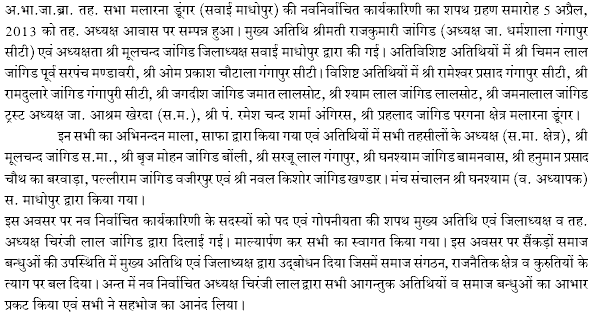 अ.भा.जा.ब्रा. तह. सभा मलारना डूंगर (सवाई माधोपुर) की नवनिर्वाचित कार्यकारिणी का शपथ ग्रहण समारोह 5 अप्रैल,
2013 को तह. अध्यक्ष आवास पर सम्पन्न हुआ। मुख्य अतिथि श्रीमती राजकुमारी जांगिड (अध्यक्ष जा. धर्मशाला गंगापुर
सीटी) एवं अध्यक्षता श्री मूलचन्द जांगिड जिलाध्यक्ष सवाई माधोपुर द्वारा की गई। अतिविशिष्ट अतिथियों में श्री चिमन लाल
जांगिड पूर्व सरपंच मण्डावरी, श्री ओम प्रकाश चौटाला गंगापुर सीटी। विशिष्ट अतिथियों में श्री रामेश्वर प्रसाद गंगापुर सीटी, श्री
रामदुलारे जांगिड गंगापुरी सीटी, श्री जगदीश जांगिड जमात लालसोट, श्री श्याम लाल जांगिड लालसोट, श्री जमनालाल जांगिड
ट्रस्ट अध्यक्ष जा. आश्रम खेरदा (स.म.), श्री पं. रमेश चन्द शर्मा अंगिरस, श्री प्रहलाद जांगिड परगना क्षेत्र मलारना डूंगर।
इन सभी का अभिनन्दन माला, साफा द्वारा किया गया एवं अतिथियों में सभी तहसीलों के अध्यक्ष (स.मा. क्षेत्र), श्री
मूलचन्द जांगिड स.मा., श्री बृज मोहन जांगिड बोंली, श्री सरजू लाल गंगापुर, श्री घनश्याम जांगिड बामनवास, श्री हनुमान प्रसाद
चौथ का बरवाड़ा, पल्लीराम जांगिड वजीरपुर एवं श्री नवल किशोर जांगिड खण्डार। मंच संचालन श्री घनश्याम (व. अध्यापक)
स. माधोपुर द्वारा किया गया।
इस अवसर पर नव निर्वाचित कार्यकारिणी के सदस्यों को पद एवं गोपनीयता की शपथ मुख्य अतिथि एवं जिलाध्यक्ष व तह.
अध्यक्ष चिरंजी लाल जांगिड द्वारा दिलाई गई। माल्यार्पण कर सभी का स्वागत किया गया। इस अवसर पर सैंकड़ों समाज
बन्धुओं की उपस्थिति में मुख्य अतिथि एवं जिलाध्यक्ष द्वारा उद्बोधन दिया जिसमें समाज संगठन, राजनैतिक क्षेत्र व कुरुतियों के
त्याग पर बल दिया। अन्त में नव निर्वाचित अध्यक्ष चिरंजी लाल द्वारा सभी आगन्तुक अतिथियों व समाज बन्धुओं का आभार
प्रकट किया एवं सभी ने सहभोज का आनंद लिया।